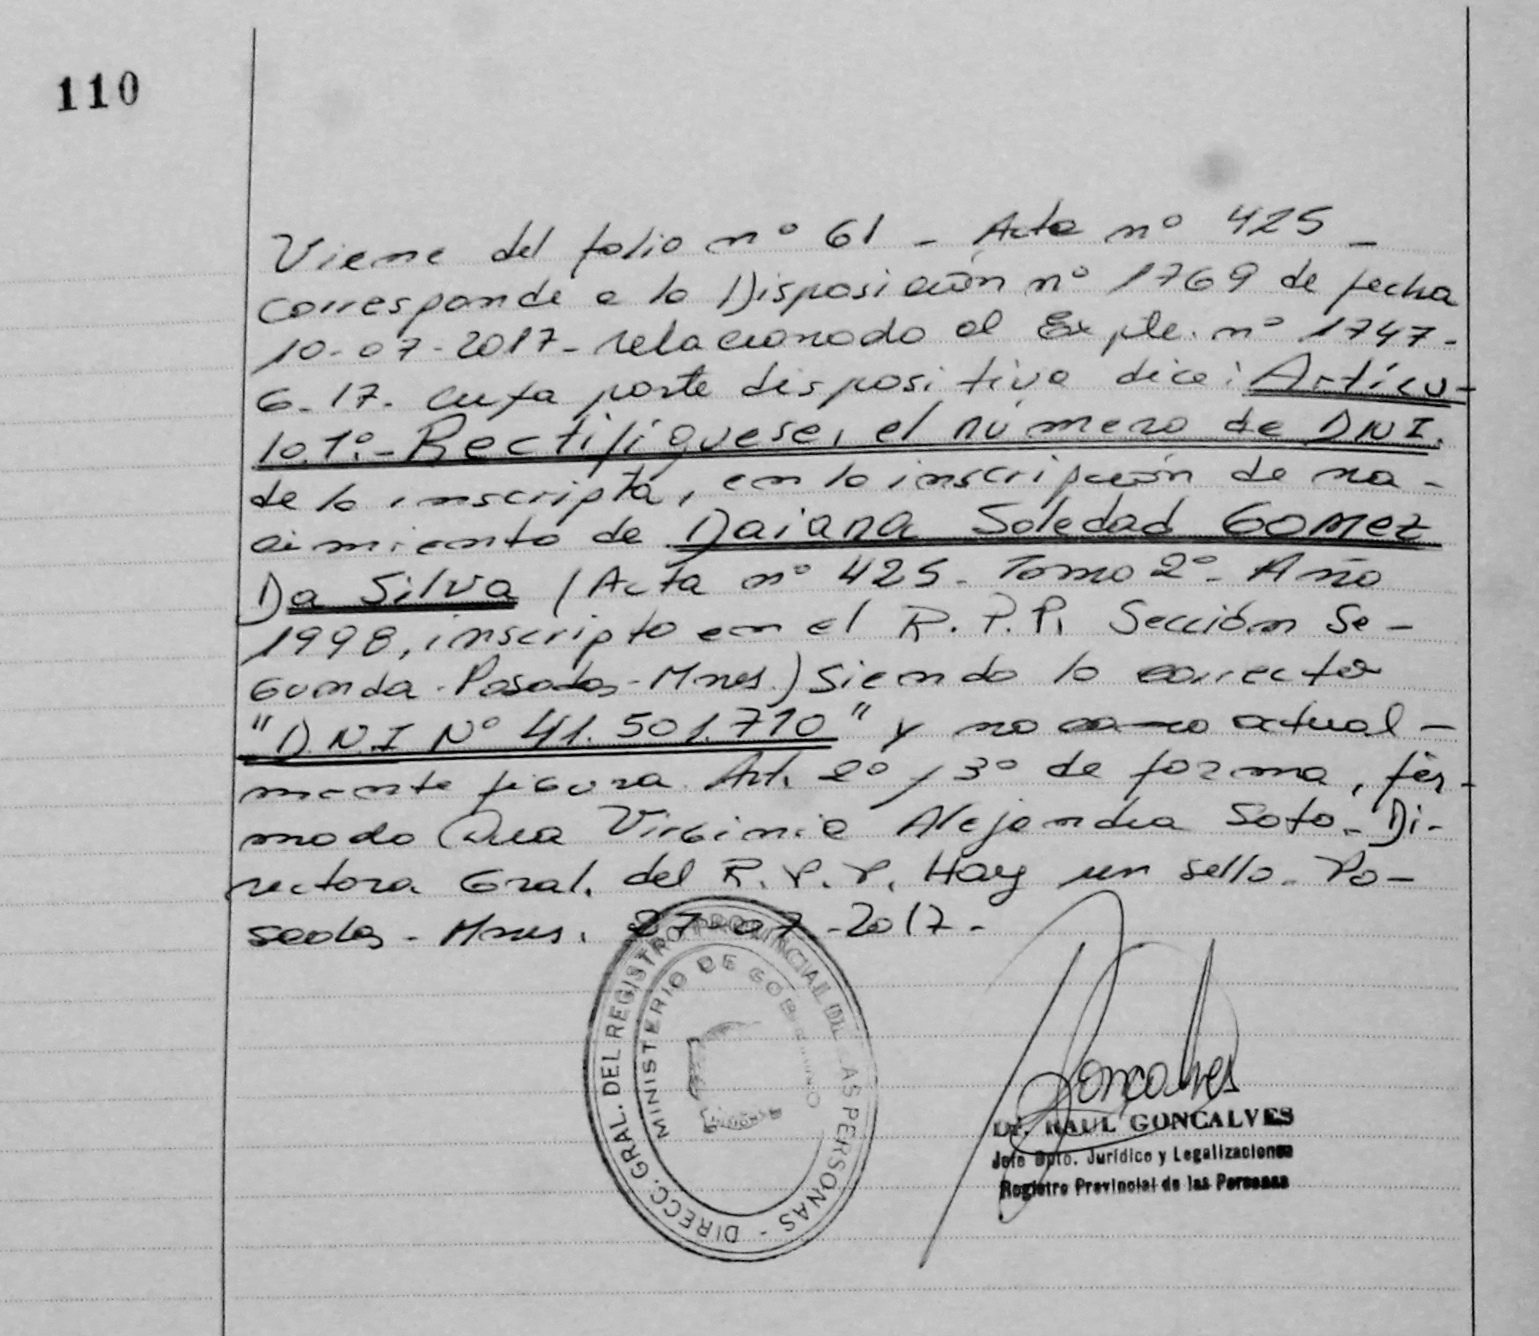 110
Viene del folio nº 61 - Acta nº 425 -
corresponde a la Disposición nº 1769 de fecha
10-07-2017- relacionado al Expte. nº 1747-
6-17. cuya parte dispositiva dice: Artícu-
lo.1º.- Rectifíquese, el número de DNI.
de la inscripta, en la inscripción de na-
cimiento de Daiana Soledad GOMEZ
Da Silva (Acta nº 425. Tomo 2º. Año
1998, inscripto en el R.P.P. Sección Se-
gunda-Posadas-Mnes.) Siendo lo correcto
"D.N.I Nº 41.501.710" y no como actual-
mente figura. Art. 2º y 3º de forma, fir-
mado Dra Virginia Alejandra Soto. Di-
rectora Gral. del R.P.P. Hay un sello. Po-
sadas - Mnes. 27-07-2017.-
DIRECC. GRAL. DEL REGISTRO PROVINCIAL DE LAS PERSONAS -
MINISTERIO DE GOBIERNO
MISIONES
Goncalves
Dr. RAUL GONCALVES
Jefe Dpto. Jurídico y Legalizaciones
Registro Provincial de las Personas